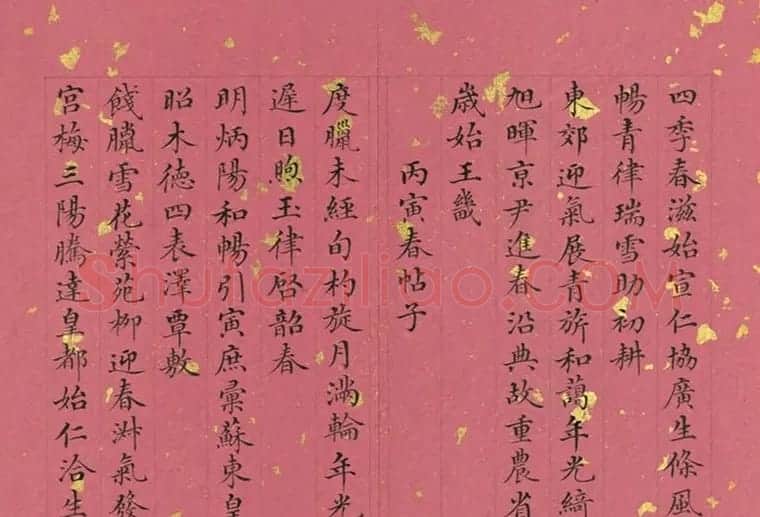 四季春滋始宣仁協廣生條風
暢青律瑞雪助初耕
東郊迎氣展青旂和藹年光綺
旭暉京尹進春沿典故重農省
歲始王畿
丙寅春帖子
度臘未經旬杓旋月滿輪年光
遲日煦玉律啓韶春
明炳陽和暢引寅庶彙蘇東皇
昭木德四表澤覃敷
餞臘雪花縈苑柳迎春淑氣發
宮梅三陽騰達皇都始仁洽生
Shufaziliao.COM